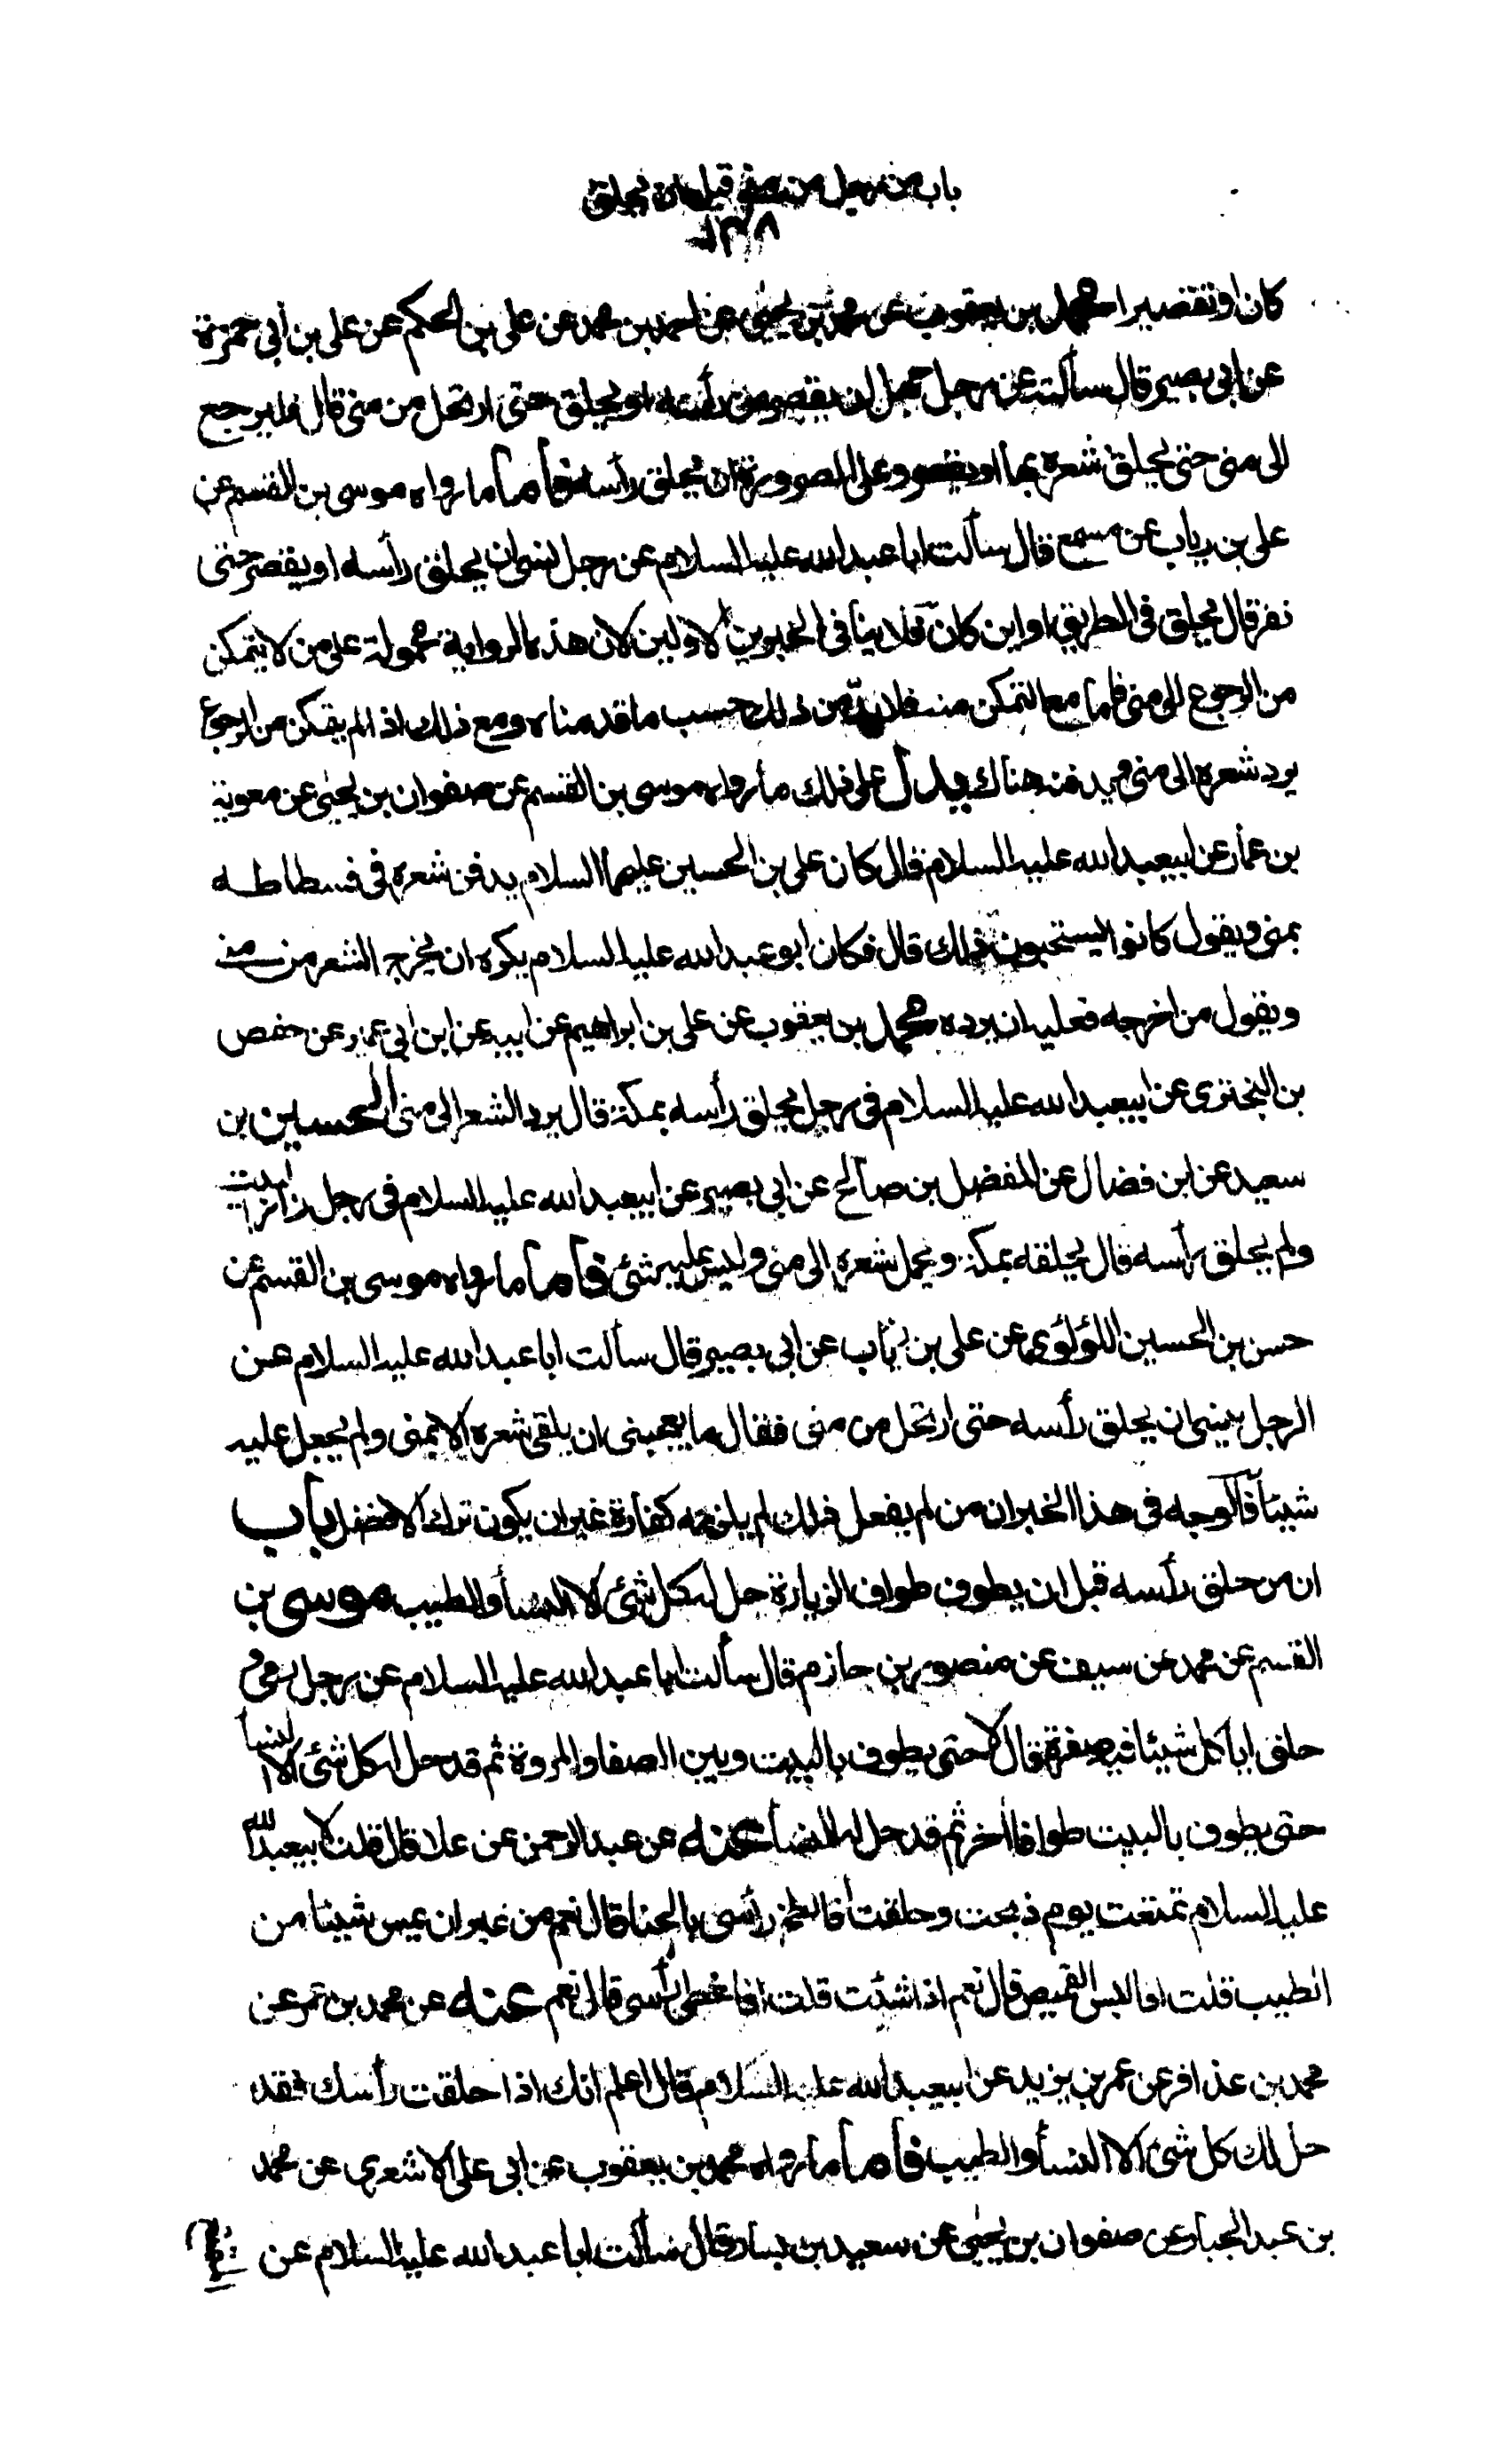 باب من رحل من منى قبل ان يحلق
١٣٨
كان او تقصيرا محمد بن يعقوب عن محمد بن يحيى عن احمد بن محمد عن على بن الحكم عن على بن ابى حمزة
عن ابى بصير قال سألت عن رجل جهل ان يقصر من رأسه او يحلق حتى ارتحل من منى قال فليرجع
الى منى حتى يحلق شعره بها او يقصر وعلى الصرورة ان يحلق رأسه فأما ما رواه موسى بن القسم عن
على بن رياب عن مسمع قال سألت ابا عبد الله عليه السلام عن رجل نسى ان يحلق رأسه او يقصر حتى
نفر قال يحلق فى الطريق او اين كان فلا ينافى الخبرين الاولين لان هذه الرواية محمولة على من لا يتمكن
من الرجوع الى منى فاما مع التمكن منه فلا بدّ من ذلك حسب ما قدمناه ومع ذلك اذا لم يتمكن من الرجوع
يرد شعره الى منى ويدفنه هناك يدل على ذلك ما رواه موسى بن القسم عن صفوان بن يحيى عن معوية
بن عمار عن ابيعبد الله عليه السلام قال كان على بن الحسين عليهما السلام يدفن شعره فى فسطاطه
بمنى ويقول كانوا يستحبون ذلك قال فكان ابو عبد الله عليه السلام يكره ان يخرج الشعر من منى
ويقول من اخرجه فعليه ان يرده محمد بن يعقوب عن على بن ابراهيم عن ابيه عن ابن ابى عمير عن حفص
بن البخترى عن ابيعبد الله عليه السلام فى رجل يحلق رأسه بمكة قال يرد الشعر الى منى الحسين بن
سعيد عن ابن فضال عن المفضل بن صالح عن ابى بصير عن ابيعبد الله عليه السلام فى رجل زار البيت
ولم يحلق رأسه قال يحلقه بمكة ويحمل شعره الى منى وليس عليه شئ فأما ما رواه موسى بن القسم عن
حسن بن الحسين اللؤلؤى عن على بن رئاب عن ابى بصير قال سألت ابا عبد الله عليه السلام عن
الرجل ينسى ان يحلق رأسه حتى ارتحل من منى فقال ما يعجبنى ان يلقى شعره الا بمنى ولم يجعل عليه
شيئا فالوجه فى هذا الخبر ان من لم يفعل ذلك لم يلزمه كفارة غير ان يكون ترك الافضل باب
ان من حلق رأسه قبل ان يطوف طواف الزيارة حل له كل شئ الا النسأ والطيب موسى بن
القسم عن محمد عن سيف عن منصور بن حازم قال سألت ابا عبد الله عليه السلام عن رجل رمى و
حلق ايأكل شيئا فيه صفرة قال لا حتى يطوف بالبيت وبين الصفا والمروة ثم قد حل له كل شئ الا النسأ
حتى يطوف بالبيت طوافا اخر ثم قد حل له النسأ عنه عن عبد الرحمن عن علا قال قلت لابيعبد الله
عليه السلام تمتعت يوم ذبحت وحلقت أفالطخ رأسى بالحنا قال نعم من غير ان يمس شيئا من
الطيب قلت افالبس القميص قال نعم اذا شئت قلت افاغطى رأسى قال نعم عنه عن محمد بن عمر عن
محمد بن عذافر عن عمر بن يزيد عن ابيعبد الله عليه السلام قال اعلم انك اذا حلقت رأسك فقد
حل لك كل شئ الا النسأ والطيب فأما ما رواه محمد بن يعقوب عن ابى على الاشعرى عن محمد
بن عبد الجبار عن صفوان بن يحيى عن سعيد بن يسار قال سألت ابا عبد الله عليه السلام عن